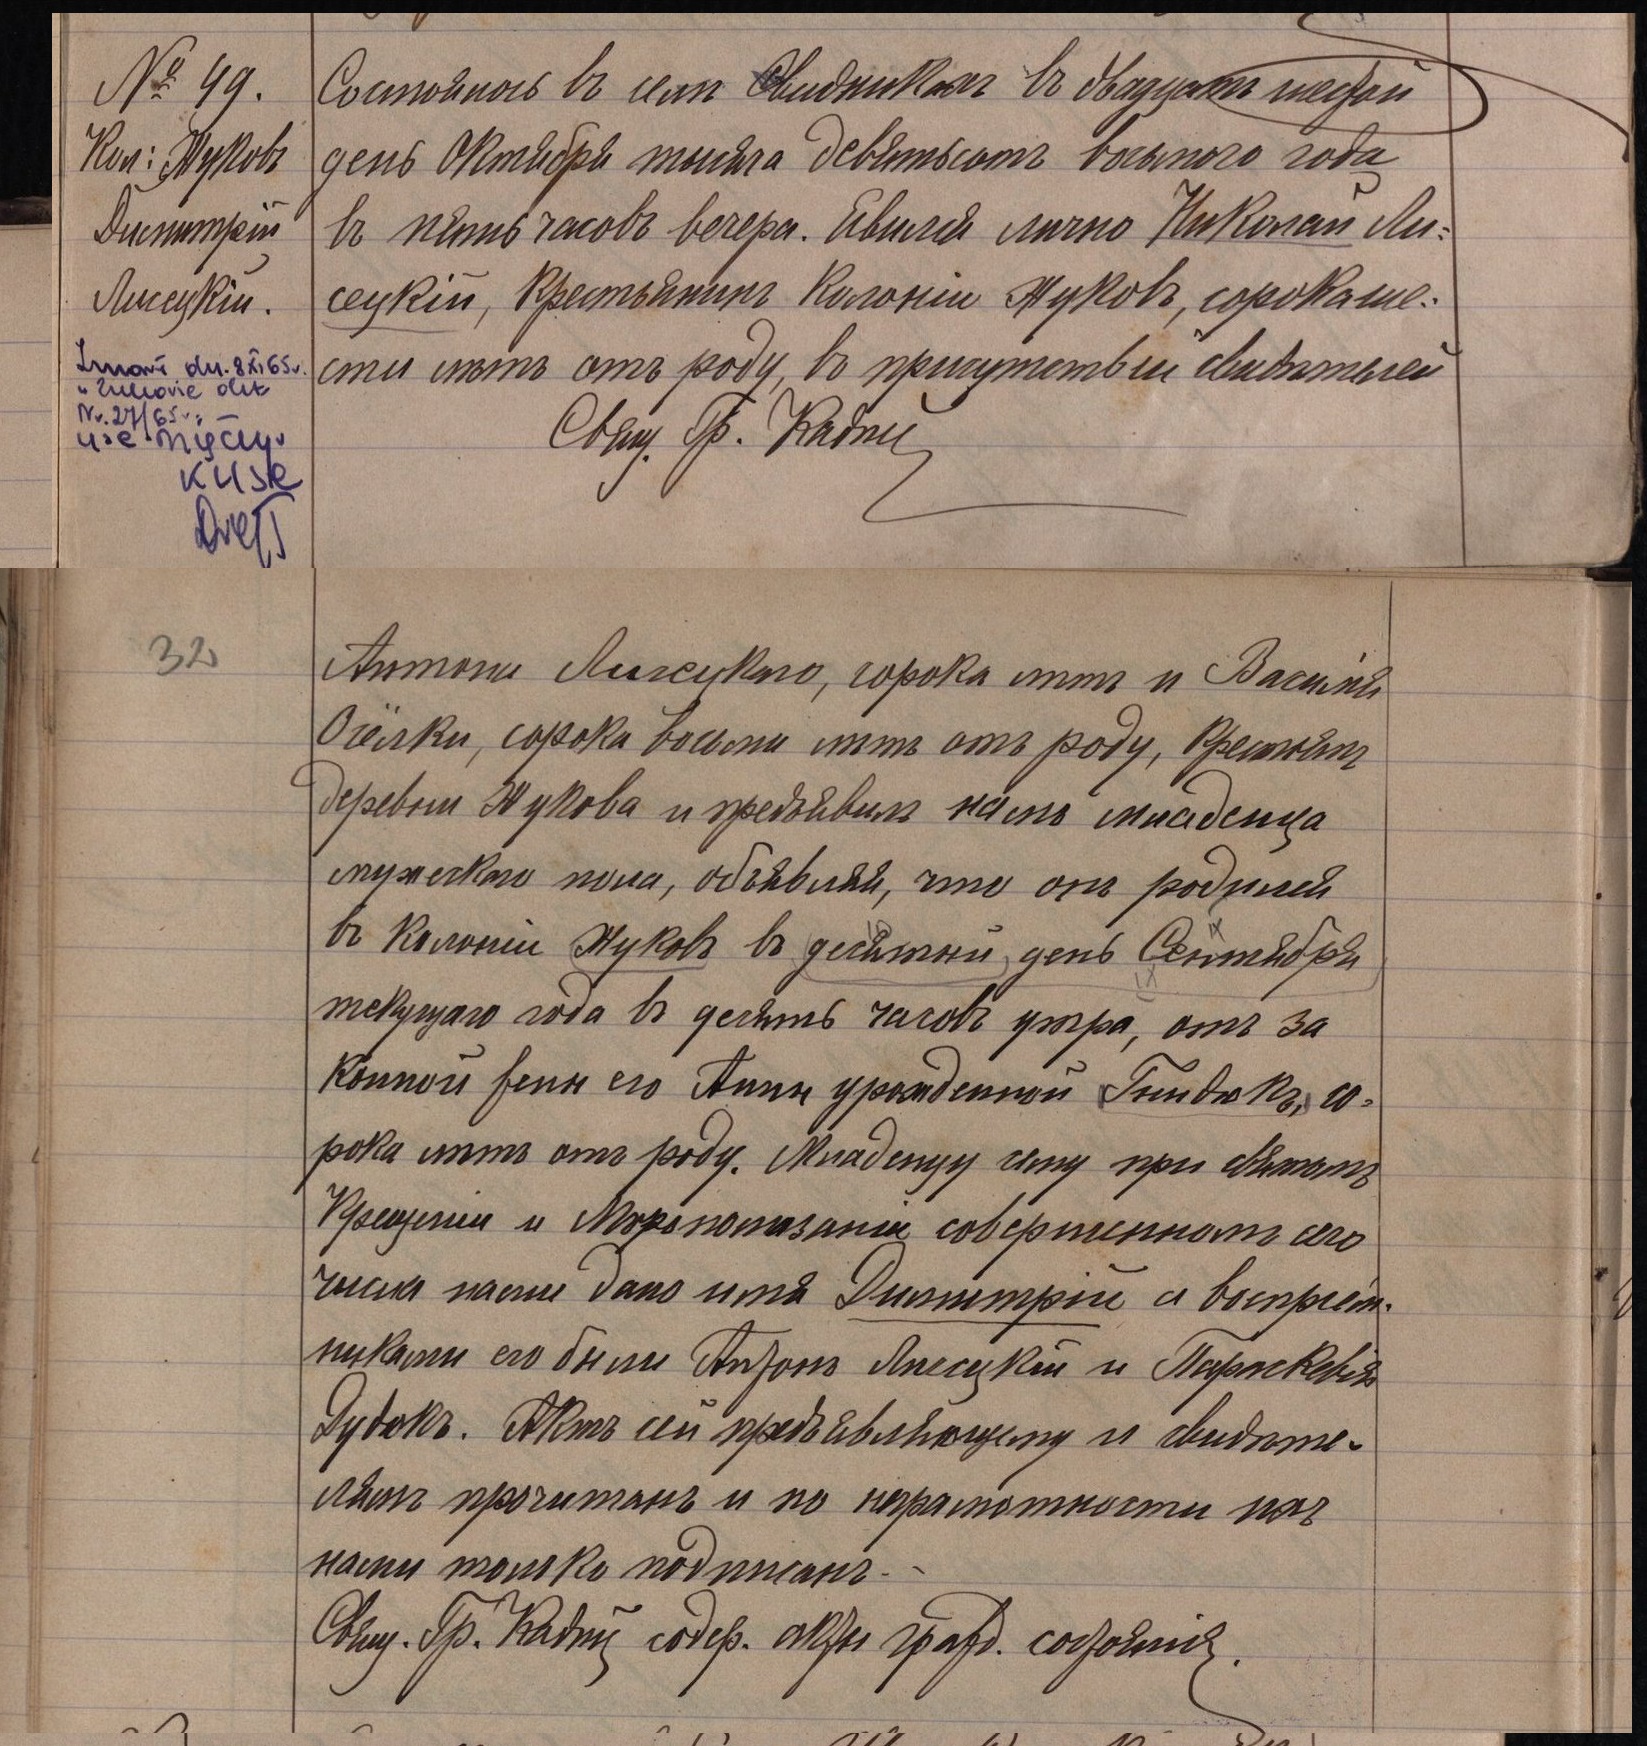 № 49.
Кол: Жуковъ
Димитрій
Лисецкій.
Zmarł dn. 8 XI 65 r.
w Żukowie akt
Nr. 27/65 r.
Состоялось въ селѣ Свидникахъ въ двадцать шестой
день Октября тысяча девятьсотъ восьмого года
въ пять часовъ вечера. Явился лично Николай Ли=
сецкій, крестьянинъ колоніи Жуковъ, сорока ше=
сти лѣтъ отъ роду, въ присутствіи свидѣтелей
Свящ. Гр.
32
Антона Лисецкаго, сорока лѣтъ и Василія
сорока восьми лѣтъ отъ роду, крестьянъ
деревни Жукова и предъявилъ намъ младенца
мужескаго пола, объявляя, что онъ родился
въ колоніи Жуковъ въ десятый день Сентября
текущаго года въ десять часовъ утра, отъ за
конной жены его Анны урожденной Гиндюкъ, со=
рока лѣтъ отъ роду. Младенцу сему при святомъ
Крещеніи и Мѵропомазаніи совершенномъ сего
числа нами дано имя Димитрій а воспріем=
никами его были Антонъ Лисецкій и Параскевія
Дудюкъ. Актъ сей предъявляющему и свидѣте=
лямъ прочитанъ и по неграмотности ихъ
нами только подписанъ.-
Свящ. Гр. содер. акты гражд. состоянія.